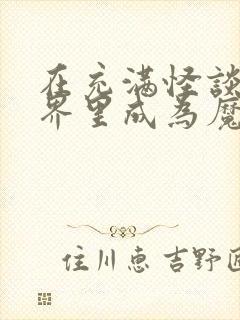 在充满怪談
界里成為魔
住川惠 吉野匠